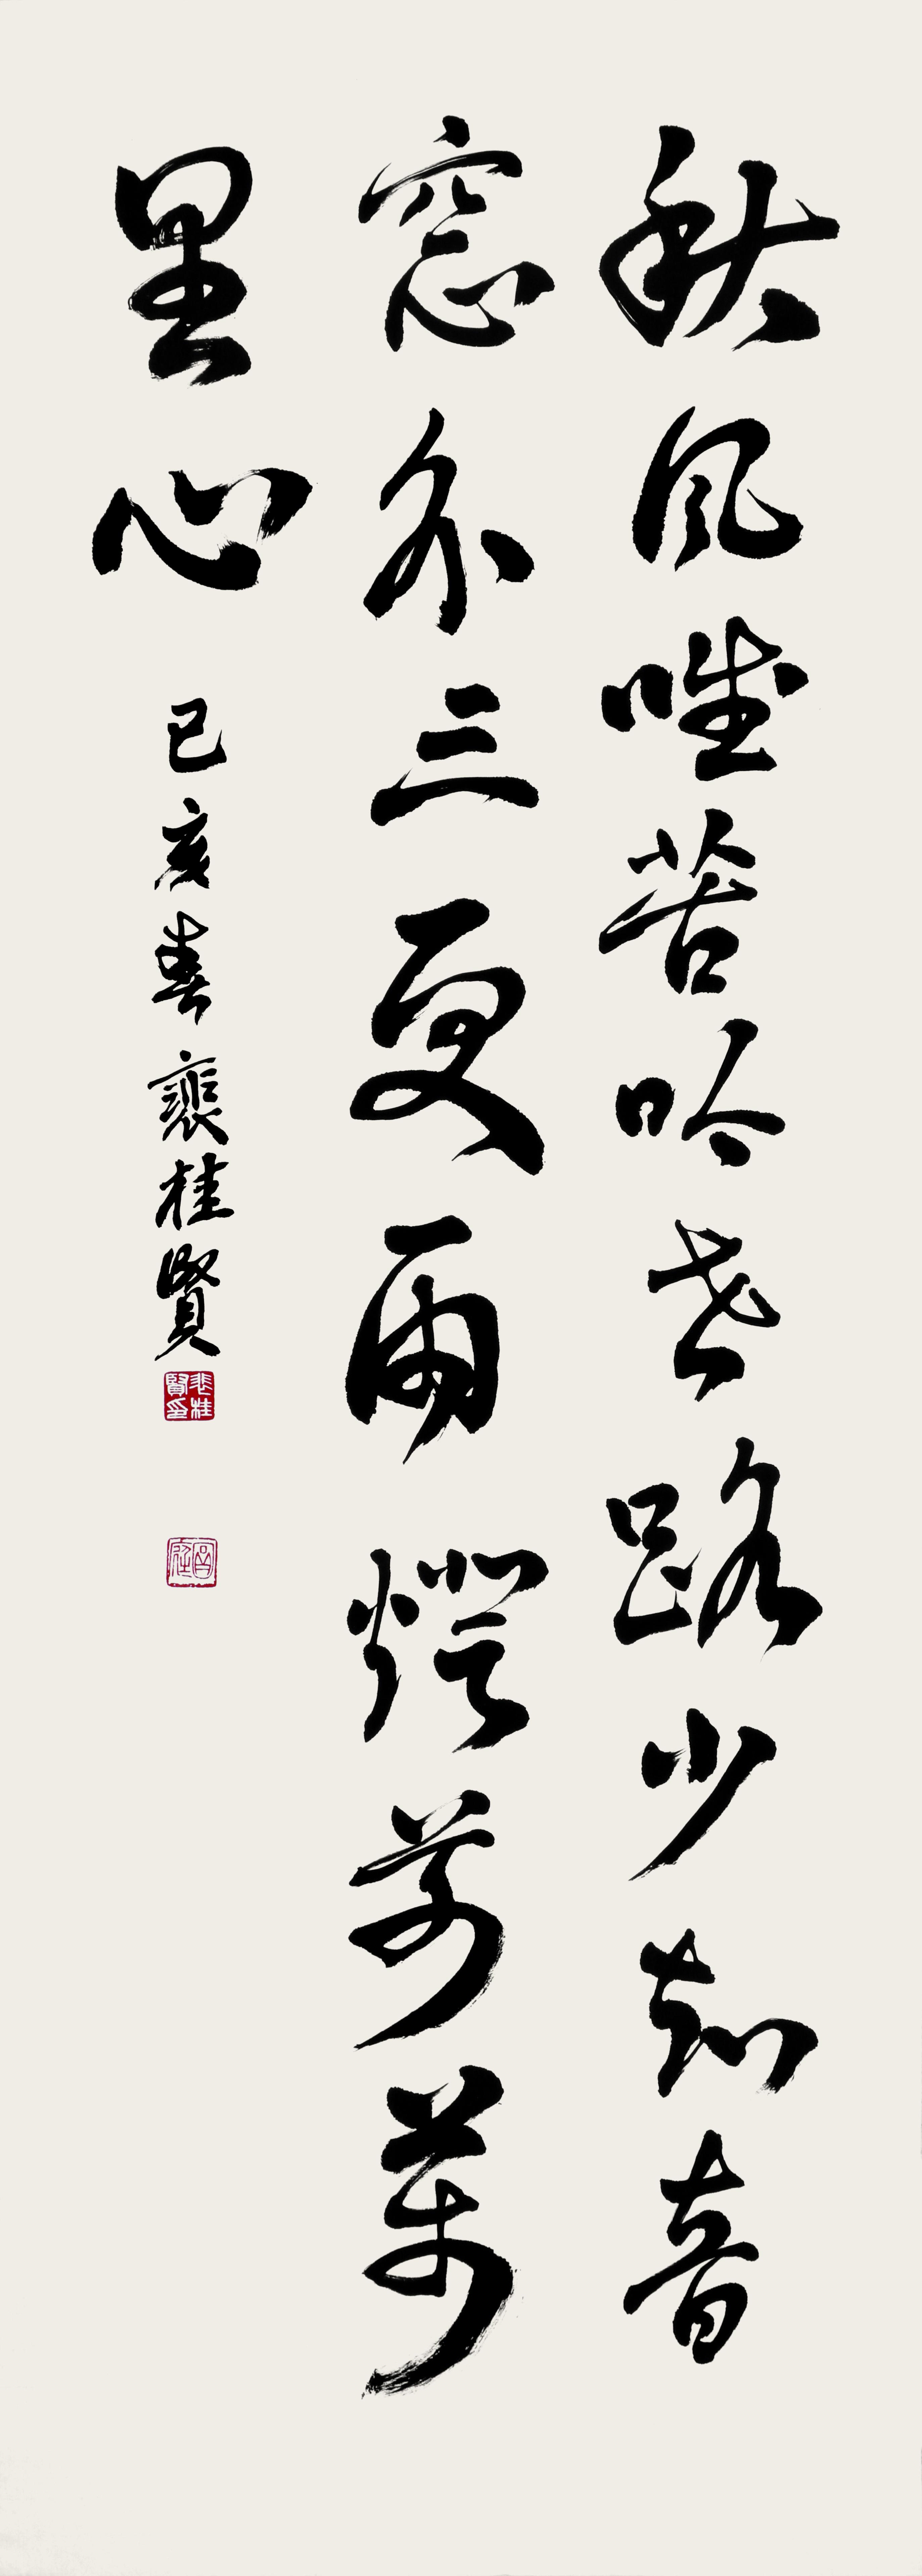 秋風唯苦吟世路少知音
窓外三更雨燈前萬
里心
己亥春裵桂賢
裵桂賢印